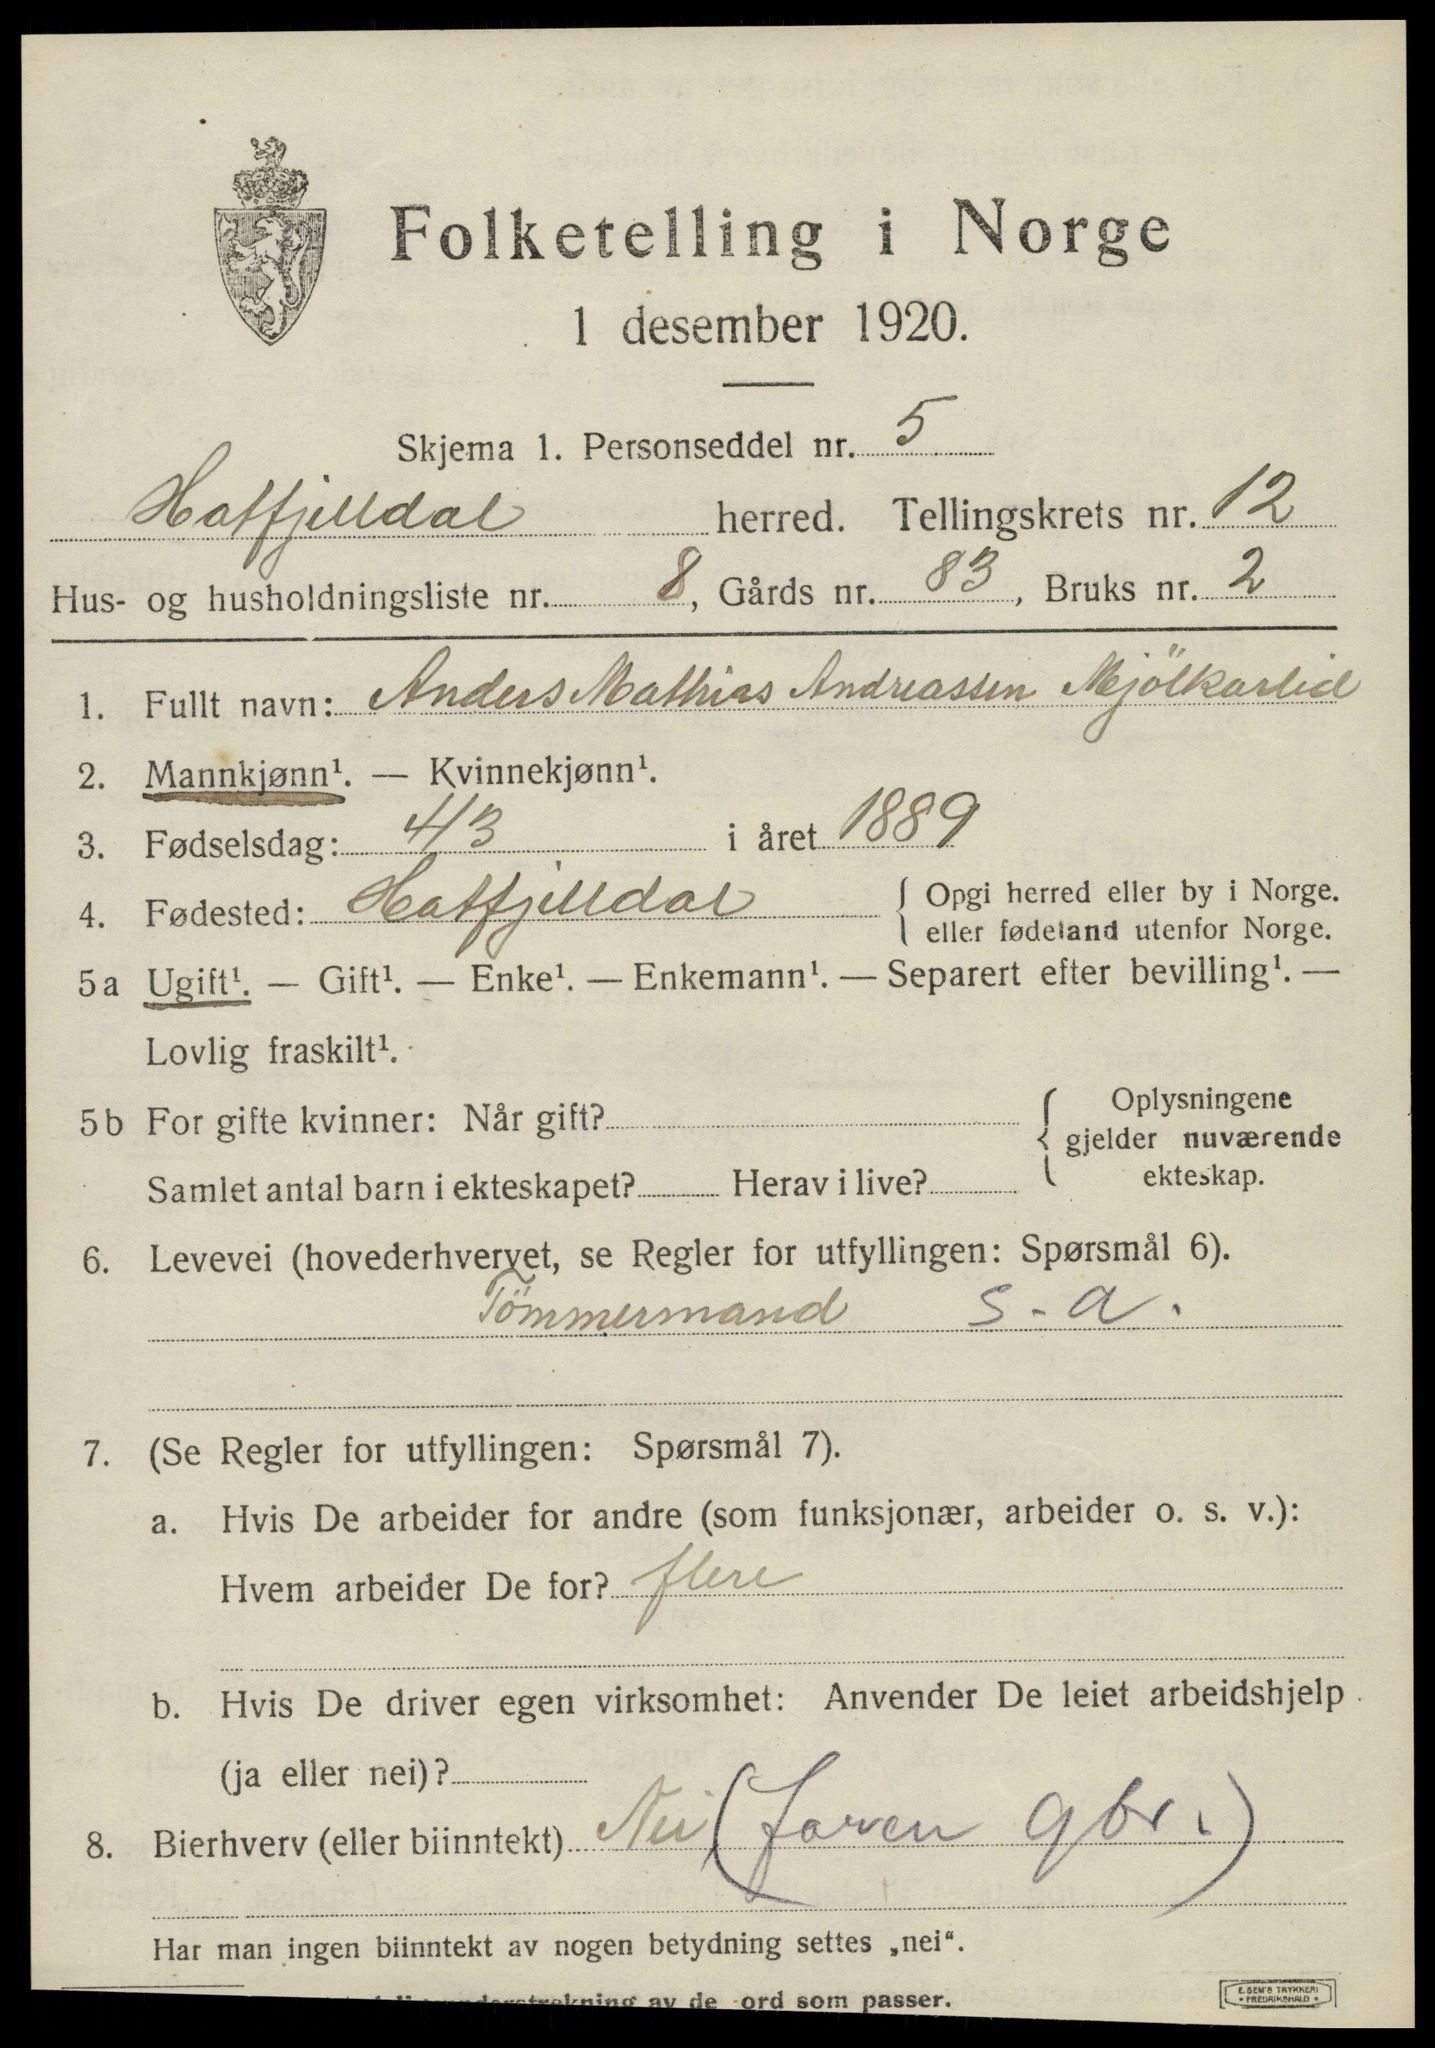 Folketelling i Norge
1 desember 1920.
Skjema 1. Personseddel nr. 5
Hatfjelldal herred. Tellingskrets nr. 12
Hus- og husholdningsliste nr. 8, Gårds nr. 83, Bruks nr. 2
1. Fullt navn: Anders Mathias Andreassen Mjölkarlid
2. Mannkjønn¹. — Kvinnekjønn¹.
3. Fødselsdag: 4/3 i året 1889
4. Fødested: Hatfjelldal { Opgi herred eller by i Norge.
eller fødeland utenfor Norge.
5a Ugift¹. — Gift¹. — Enke¹. — Enkemann¹. — Separert efter bevilling¹. —
Lovlig fraskilt¹.
5b For gifte kvinner: Når gift? { Oplysningene
gjelder nuværende
Samlet antal barn i ekteskapet? Herav i live? ekteskap.
6. Levevei (hovederhvervet, se Regler for utfyllingen: Spørsmål 6).
Tömmermand s. a.
7. (Se Regler for utfyllingen: Spørsmål 7).
a. Hvis De arbeider for andre (som funksjonær, arbeider o. s. v.):
Hvem arbeider De for? flere
b. Hvis De driver egen virksomhet: Anvender De leiet arbeidshjelp
(ja eller nei)?
8. Bierhverv (eller biinntekt) Nei (faren gbr.)
Har man ingen biinntekt av nogen betydning settes „nei“.
understrekning av de ord som passer.
E. SEM'S TRYKKERI
FREDRIKSHALD